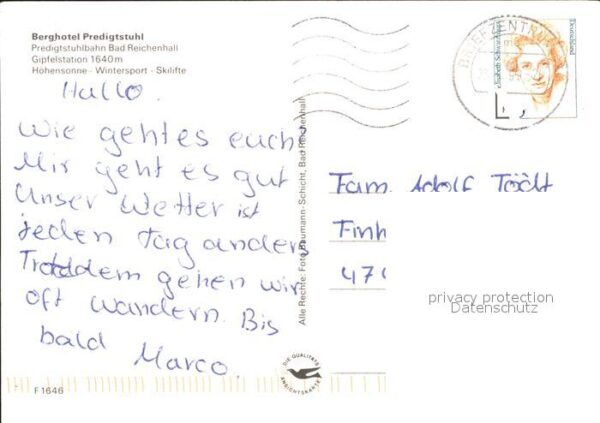 Berghotel Predigtstuhl
Predigtstuhlbahn Bad Reichenhall
Gipfelstation 1640m
Höhensonne - Wintersport - Skilifte
Hallo.
Wie geht es euch?
Mir geht es gut
Unser Wetter ist
jeden Tag anders
Trotzdem gehen wir
oft wandern. Bis
bald Marco.
F 1646
Alle Rechte: Foto Baumann-Schicht, Bad Reichenhall
DIE QUALITÄTS
ANSICHTSKARTE
BRIEFZENTRUM
Deutschland
Elisabeth Schwarzhaupt
Fam. Adolf
Finh
47
privacy protection
Datenschutz